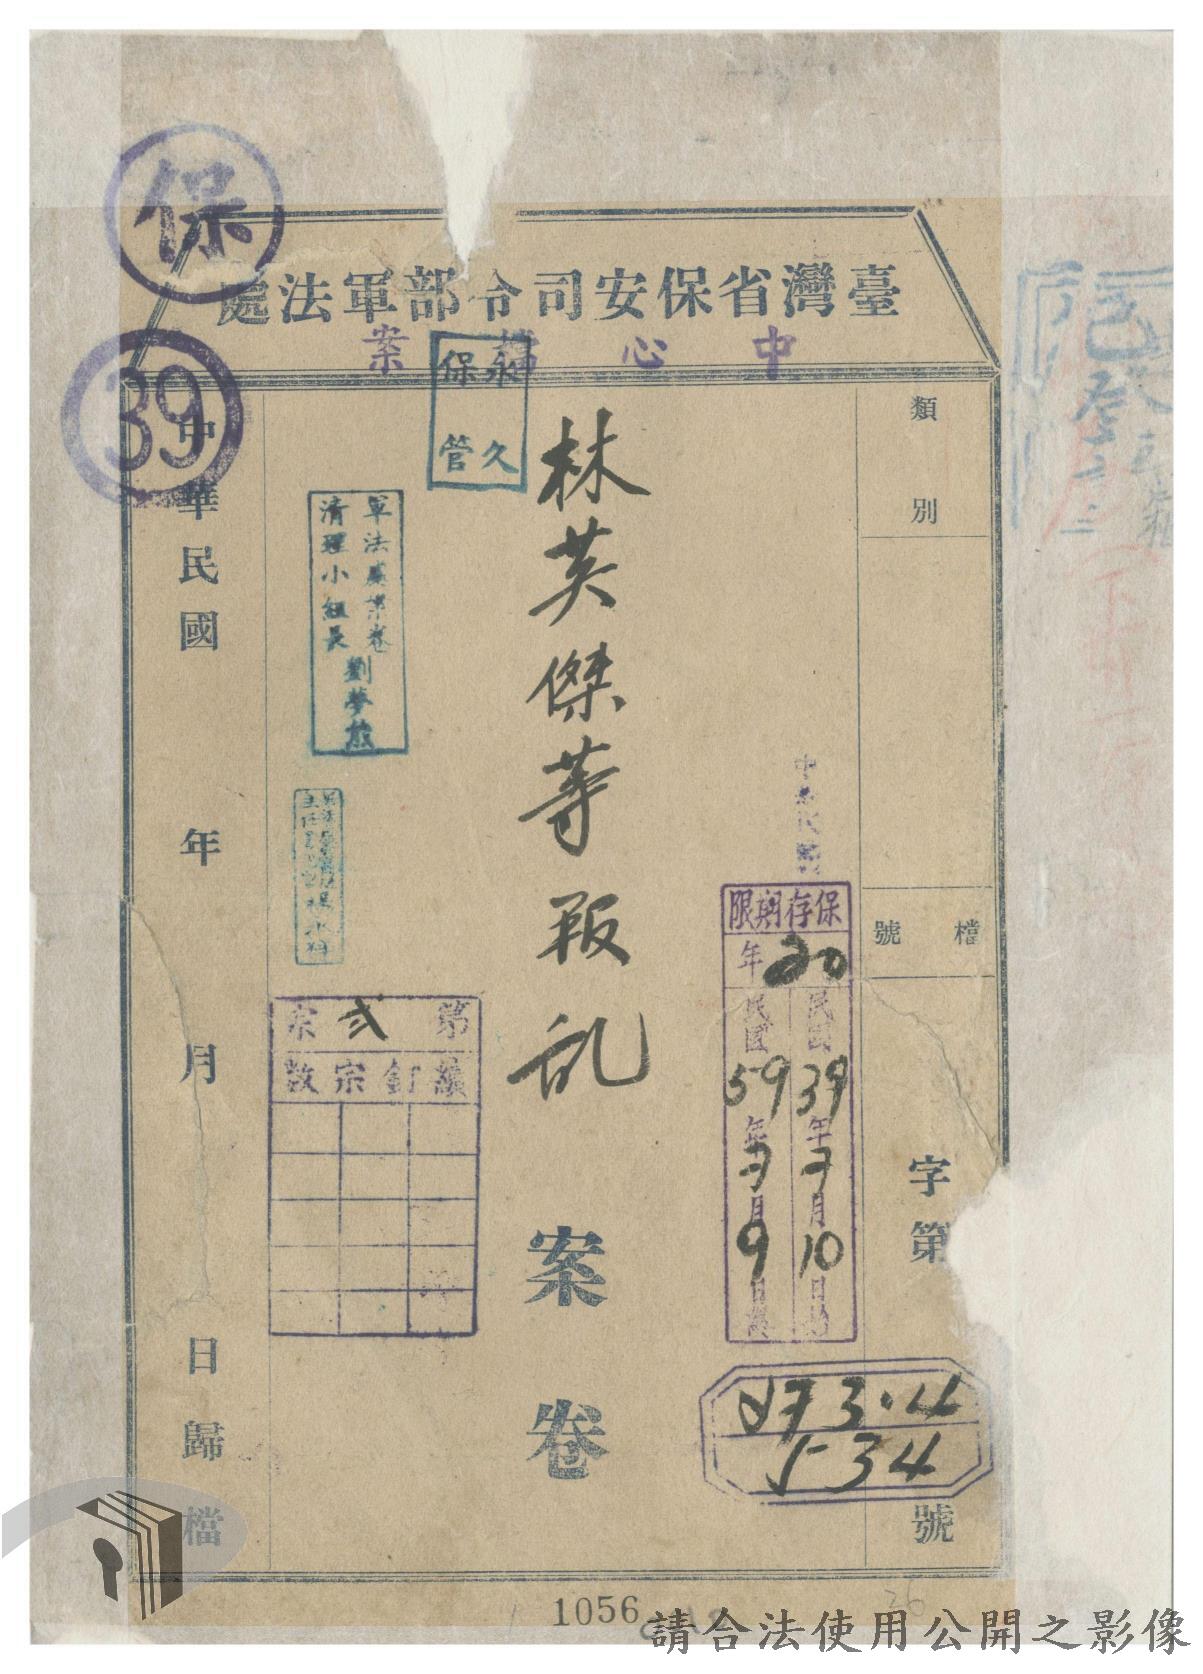 保
39
臺灣省保安司令部軍法處
中心檔案
永久保管
類別
檔號
字第
號
林英傑等叛乱
案卷
保存期限
20年
民國39年7月10日始
民國59年7月9日
273.4
534
軍法處案卷
清理小組長
劉夢熊
第弍宗
續訂宗數
中華民國 年 月 日歸檔
1056
請合法使用公開之影像